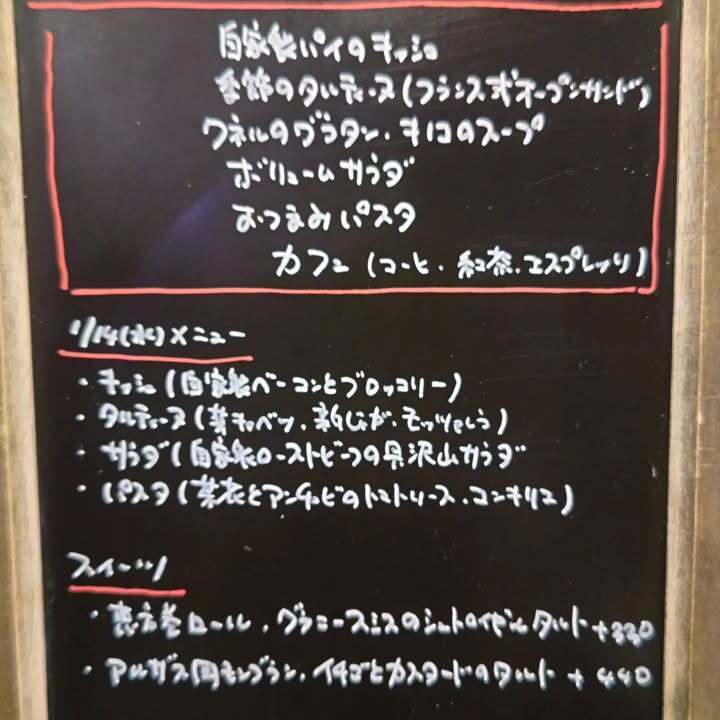 自家製パイのキッシュ
季節のタルティーヌ(フランス式オープンサンド)
クネルのグラタン、キノコのスープ
ボリュームサラダ
おつまみパスタ
カフェ(コーヒー、紅茶、エスプレッソ)
1/14(水)メニュー
・キッシュ(自家製ベーコンとブロッコリー)
・タルティーヌ(芽キャベツ、新じゃが、モッツァレラ)
・サラダ(自家製ローストビーフの具沢山サラダ
・パスタ(とアンチョビのトマトソース、コンキリエ)
スイーツ
・恵方巻ロール、グラニースミスのシュトロイゼルタルト +330
・アルザス風モンブラン、イチゴとカスタードのタルト + 440